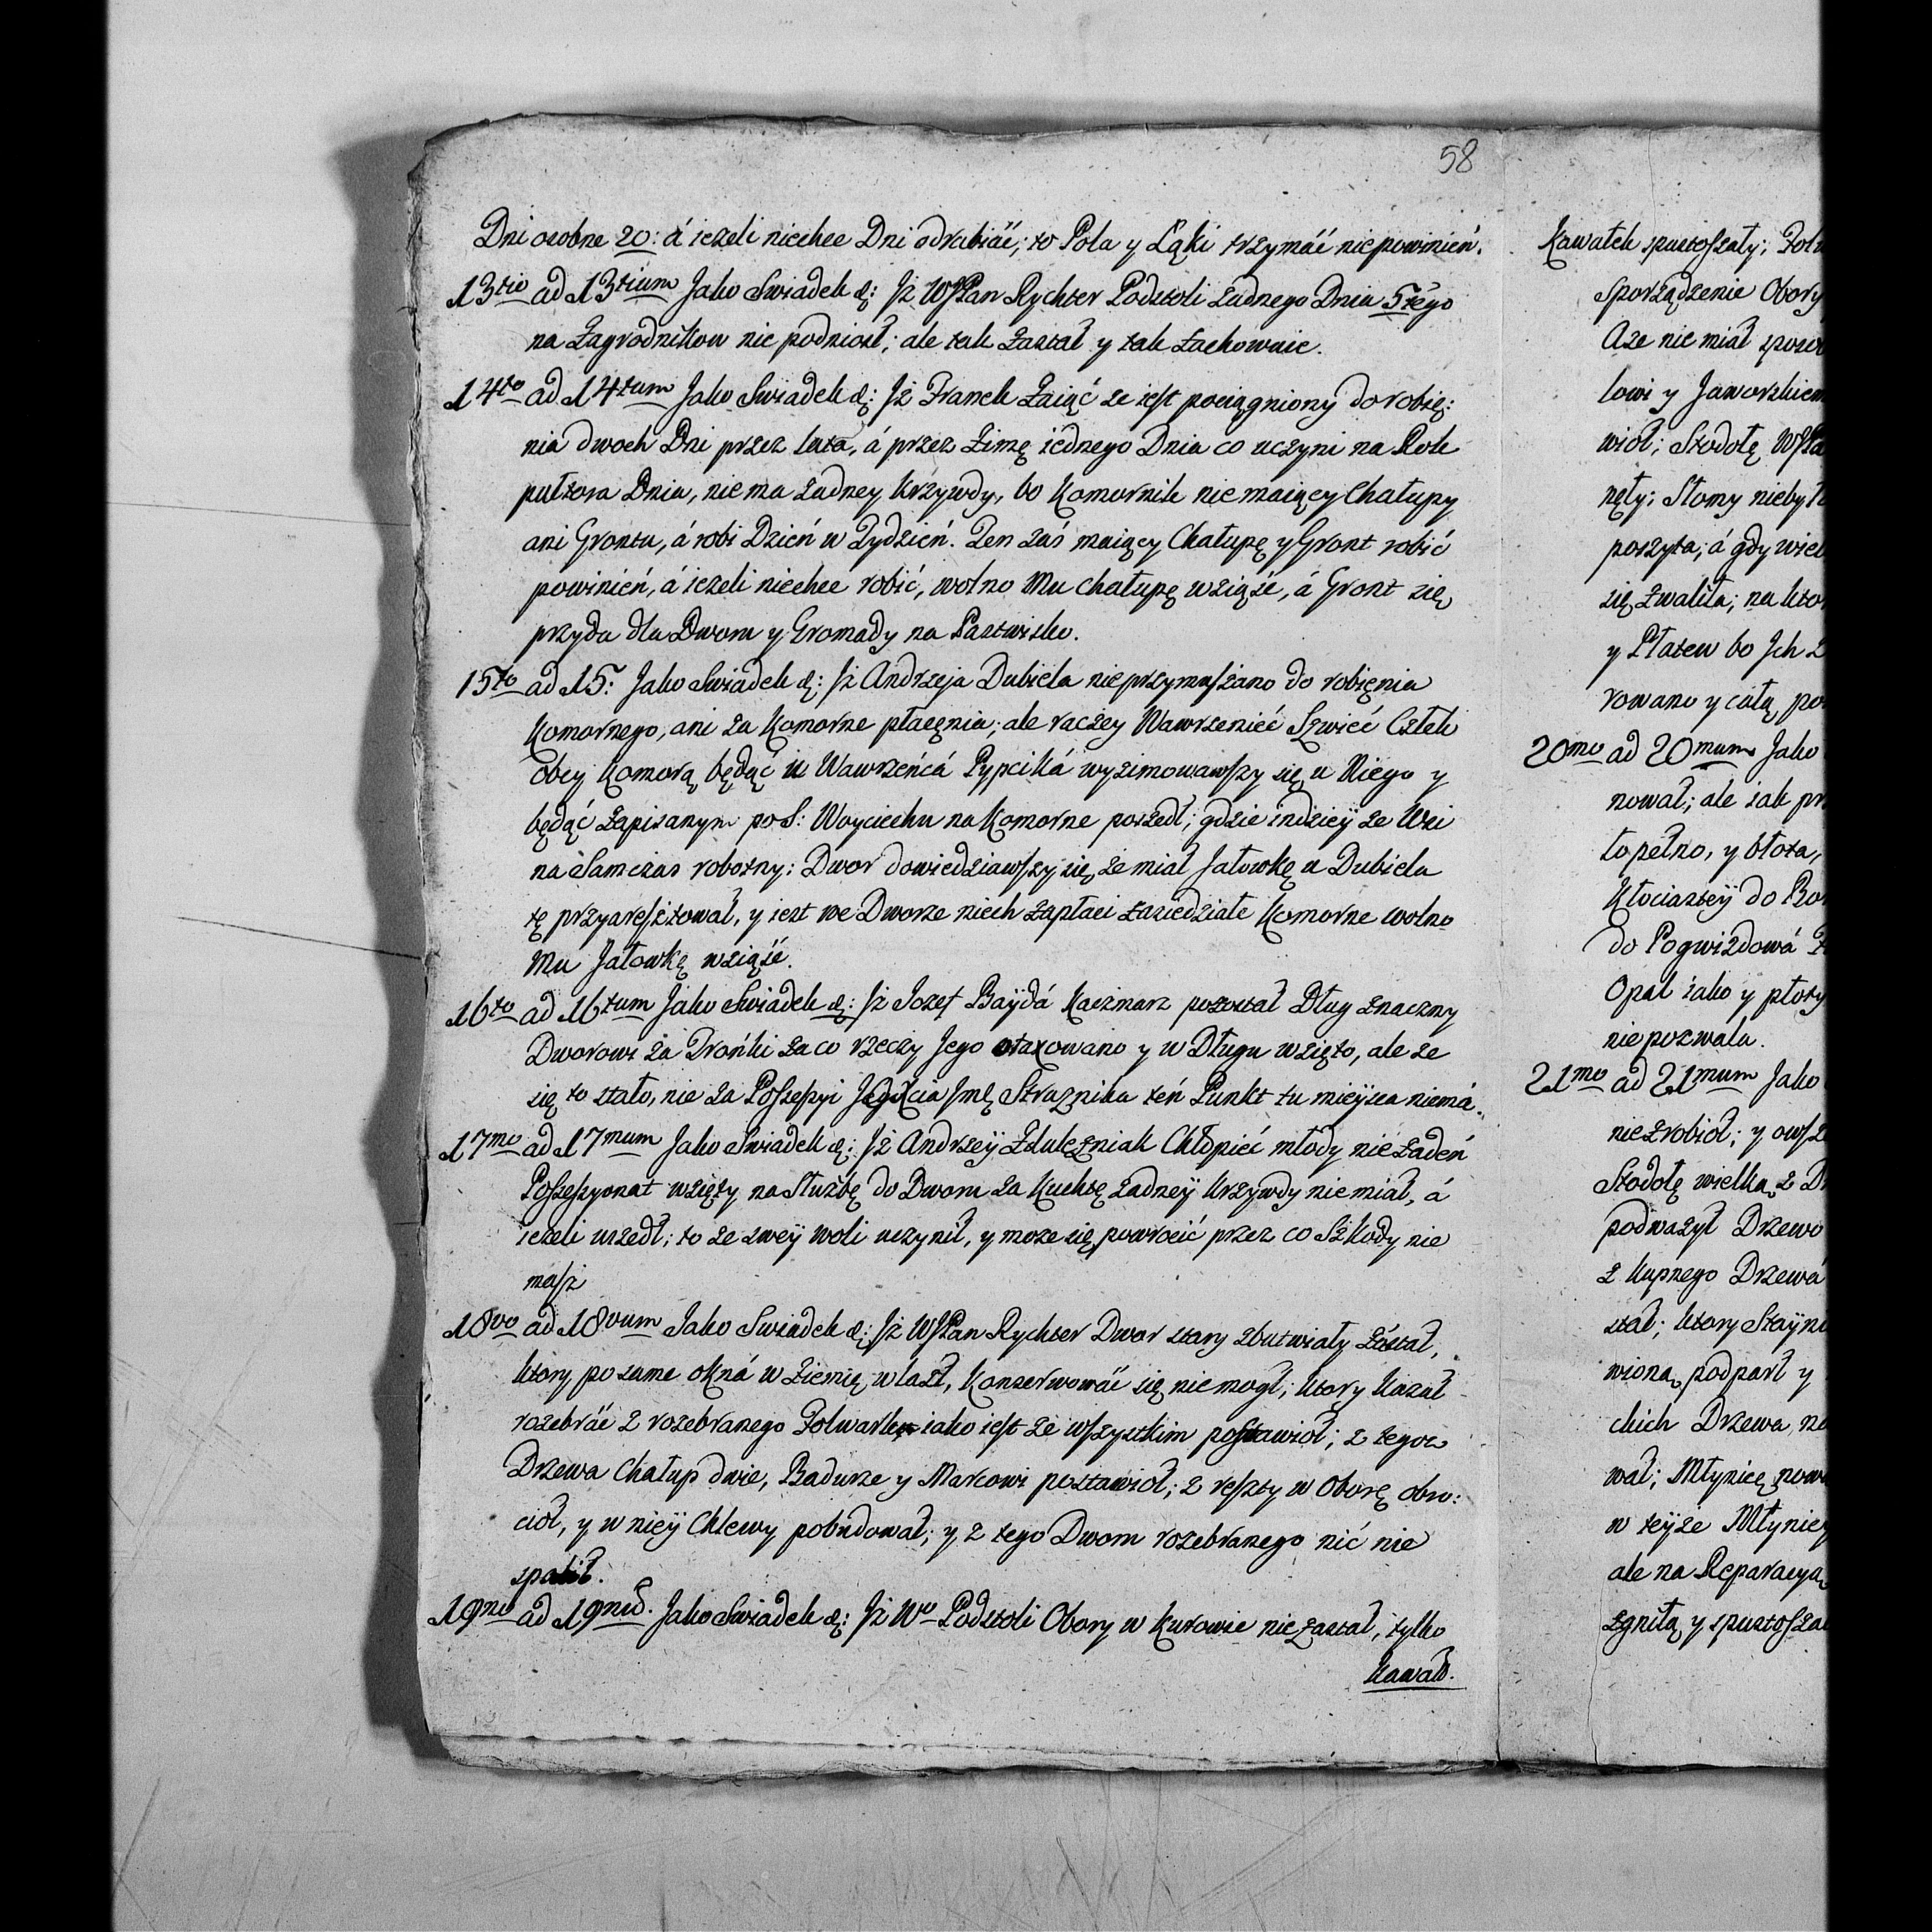 58
Dni osobne 20: á iezeli niechce Dni odrabiáć, to Pola y Łąki trzymáć niepowinień.
13tio ad 13tium Jako Swiadek &: Jż WJPan Rychter Podstoli żadnego Dnia 5tego
na Zagrodnikow nie podniosł; ale tak Zastał y tak Zachowuie.
14to ad 14tum Jako Swiadek &: Jż Franek Zaiąć ze iest pociągniony do robię:
nia dwoch Dni przez lata, á przez Zimę iednego Dnia co uczyni na Rok
pułtora Dnia, nie ma żadney Krzywdy, bo Komornik nie maiący Chałupy
ani Grontu, á robi Dzień w Tydzień. Ten zaś maiący Chałupę y Gront robić
powinień, á iezeli niechce robić, wolno Mu chałupę wziąść, á Gront się
przyda dla Dworu y Gromady na Pastwisko.
15to ad 15: Jako Swiadek &: Jż Andrzeja Dubiela nieprzymuszano do robięnia
Komornego, ani za Komorne płacęnia; ale raczey Wawrzenieć Szwieć Człek
obcy Komorą będąć u Wawrzeńcá Pypciká wyzimowawszy się u Niego y
będąć Zapisanym po S: Woyciechu na Komorne poszedł; gdzie indzieÿ ze Wsi
na Samczas robotny: Dwor dowiedziawszy się że miał Jałowkę u Dubiela
tę przyaresztował, y iest we Dworze niech Zapłaci Zasiedziałe Komorne wolno
Mu Jałowkę wziąść.
16to ad 16tum Jako Swiadek &: Jż Jozef Baÿdá Kaczmarz pozostał Dług Znaczny
Dworowi Za Trońki Za co rzeczy Jego otaxowano y w Długu wzięto, ale ze
się to stało, nie za Possessyi Jmę Straznika teń Punkt tu mieÿsca niemá.
17mo ad 17mum Jako Swiadek &: Jż AndrzeÿChłopieć młody nie Żadeń
Possessyonat wzięty na Służbę do Dworu za Kuchtę żadneÿ Krzywdy nie miał, á
iezeli uszedł; to ze sweÿ woli uczynił, y moze się powrocić przez co Szkody nie
masz
18vo ad 18vum Jako Swiadek &: Jż WJPan Rychter Dwor stary zbutwiały Zástał,
ktory po same okná w Ziemię wlazł, Konserwowáć się nie mogł; ktory kazał
rozebráć z rozebranego Folwark iako iest ze wszystkim postawioł; z tegoz
Drzewa Chałup dwie, Badurze y Marcowi postawioł; z reszty w Oborę obro:
cioł, y w nieÿ Chlewy pobudował; y z tego Dworu rozebranego nić nie
spalił.
19no ad 19num. Jako Swiadek &: Jż Wo Podstoli Obory w Kurowie nie zastał, tylko
Kawałk.
Kawałek spustoszały;
Sporządzenie Obory
Aze nie miał
lowi y Jaworskiem
wioł; Stodołę
nęły; Słomy nieby
poszyta; á gdy
się Zwaliła; na
y Płatew bo Jch
rowano y całą
20mo ad 20mum Jako
nował; ale iak
to pełno, y błota,
Kłociasteÿ do
do Pogwizdowá
Opał iako y płoty
niepozwala.
21mo ad 21mum Jako
nie Zrobioł; y
Stodołę wielką z
podwazył Drzewo
z Kupnego Drzewá
stał; ktory
wioną podparł y
chich Drzewa
wał; Młynicę
w teÿze
ale na Reparacyą
Zgniłą y